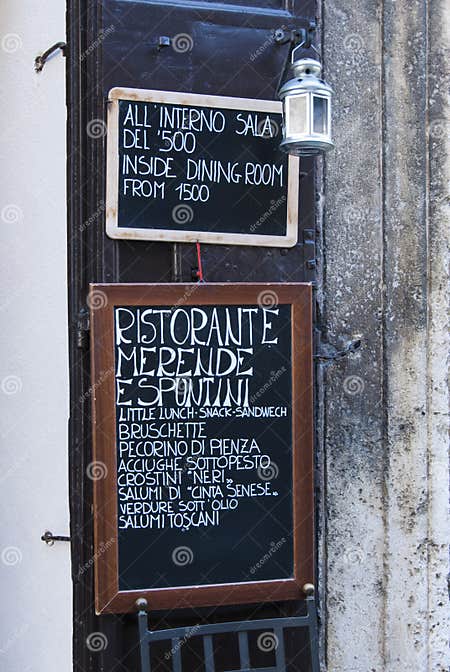 ALL'INTERNO SALA
DEL '500
INSIDE DINING ROOM
FROM 1500
RISTORANTE
MERENDE
E SPUNTINI
LITTLE LUNCH-SNACK-SANDWECH
BRUSCHETTE
PECORINO DI PIENZA
ACCIUGHE SOTTOPESTO
CROSTINI "NERI"
SALUMI DI "CINTA SENESE"
VERDURE SOTT'OLIO
SALUMI TOSCANI